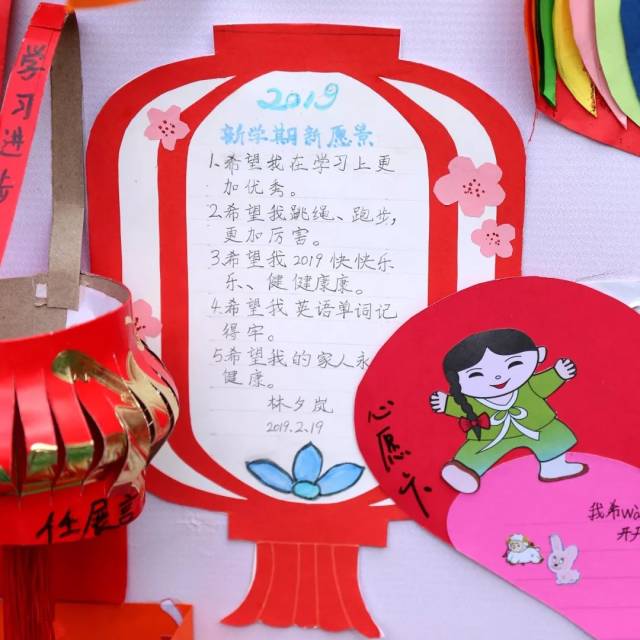 学习进步
2019
新学期新愿景
1、希望我在学习上更
加优秀。
2、希望我跳绳、跑步,
更加厉害。
3希望我2019快快乐
乐、健健康康。
4、希望我英语单词记
得牢。
5希望我的家人永
健康。
林夕岚
2019.2.19
心愿卡
我希wà
开开
任展言